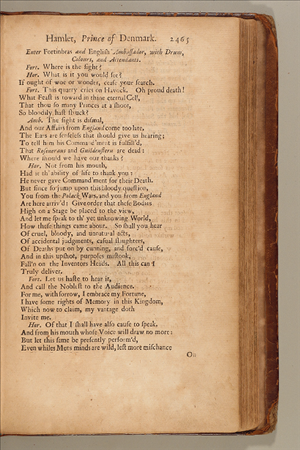 Hamlet, Prince of Denmark. 2465
Enter Fortinbras and English Ambassador, with Drum,
Colours, and Attendants.
Fort. Where is the sight?
Hor. What is it you would see?
If ought of woe or wonder, cease your search.
Fort. This quarry cries on Havock. Oh proud death!
What Feast is toward in thine eternal Cell,
That thou so many Princes at a shoot,
So bloodily hast struck?
Amb. The sight is dismal,
And our Affairs from England come too late,
The Ears are senseless that should give us hearing;
To tell him his Command'ment is fulfill'd,
That Rosincrans and Guildenstern are dead:
Where should we have our thanks?
Hor. Not from his mouth,
Had it th' ability of life to thank you:
He never gave Command'ment for their Death.
But since so jump upon this bloody question,
You from the Polack Wars, and you from England
Are here arriv'd: Give order that these Bodies
High on a Stage be placed to the view,
And let me speak to th' yet unknowing World,
How these things came about. So shall you hear
Of cruel, bloody, and unnatural acts,
Of accidental judgments, casual slaughters,
Of Deaths put on by cunning, and forc'd cause,
And in this upshot, purposes mistook,
Fall'n on the Inventors Heads. All this can I
Truly deliver.
Fort. Let us haste to hear it,
And call the Noblest to the Audience.
For me, with sorrow, I embrace my Fortune,
I have some rights of Memory in this Kingdom,
Which now to claim, my vantage doth
Invite me.
Hor. Of that I shall have also cause to speak,
And from his mouth whose Voice will draw no more:
But let this same be presently perform'd,
Even whiles Mens minds are wild, lest more mischance
On